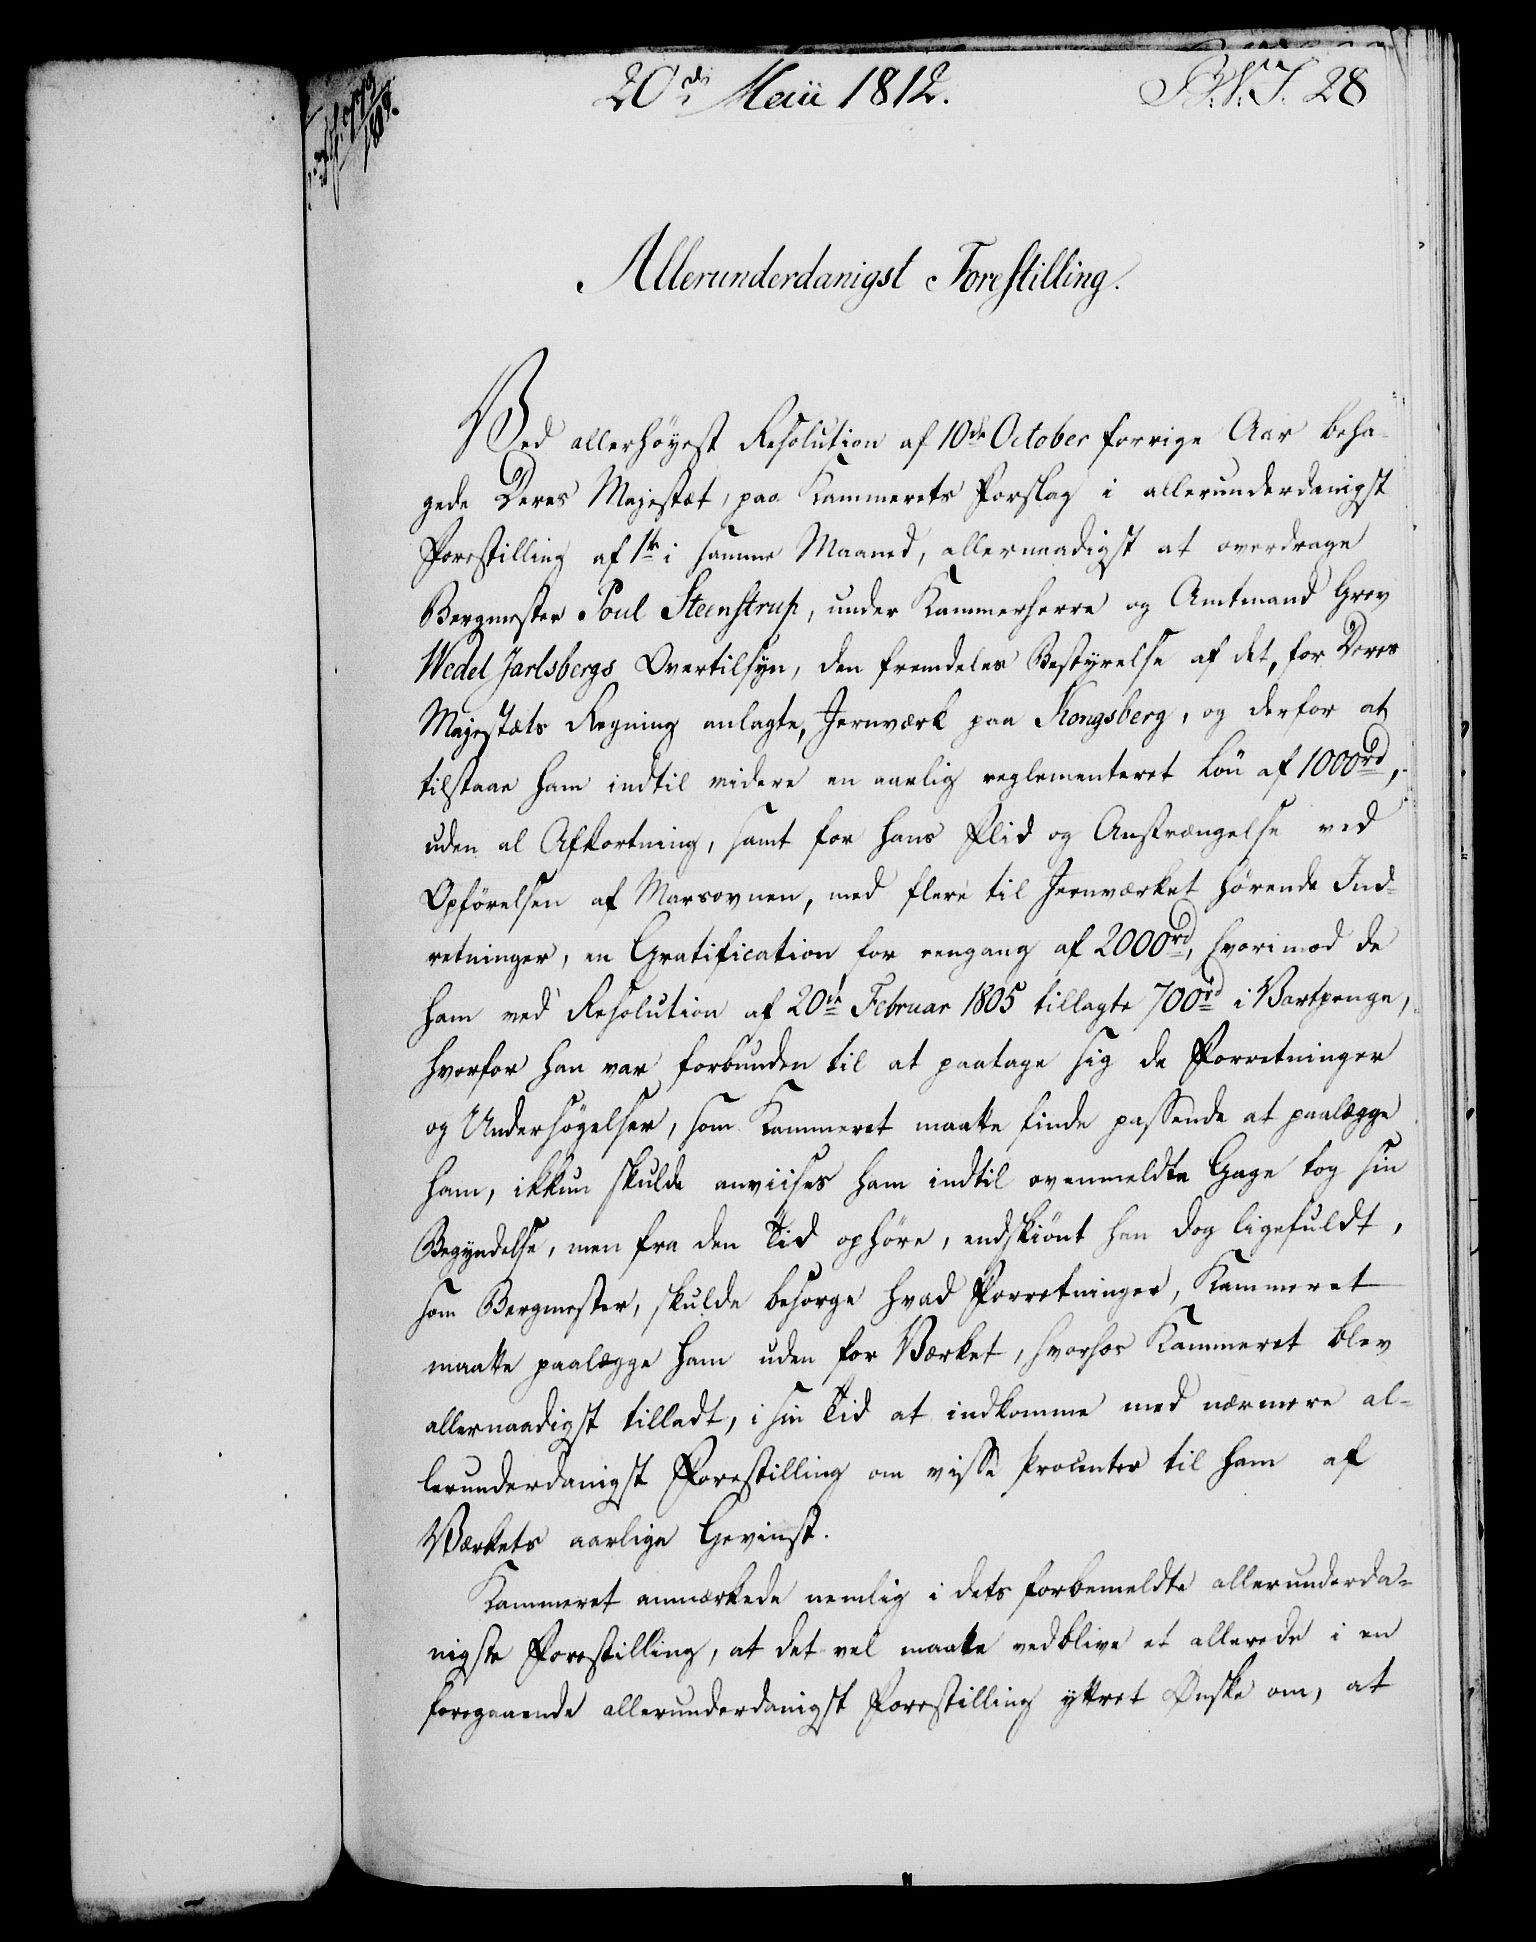 20de Maii 1812.
28
Allerunderdanigst Forestilling.
Ved allerhöyest Resolution af 10de October forrige Aar beha-
gede Deres Majestæt, paa Kammerets Forslag i allerunderdanigst
Forestilling af 1te i samme Maaned, allernaadigst at overdrage
Bergmester Poul Steenstrup, under Kammerherre og Amtmand Grev
Wedel Jarlsbergs Overtilsyn, den fremdeles Bestyrelse af det, for Deres
Majestæts Regning anlagte, Jernværk paa Kongsberg, og derfor at
tilstaae ham indtil videre en aarlig reglementeret Lön af 1000rd,
uden al Afkortning, samt for hans Flid og Anstrængelse ved
Opförelsen af Marsovnen, med flere til Jernværket hörende Ind-
retninger, en Gratification for eengang af 2000rd, hvorimod de
ham ved Resolution af 20de Februar 1805 tillagte 700rd i Vartpenge,
hvorfor han var forbunden til at paatage sig de Forretninger
og Undersögelser, som Kammeret maatte finde passende at paalægge
ham, ikkun skulde anviises ham indtil ovenmeldte Gage tog sin
Begyndelse, men fra den Tid ophöre, endskiönt han dog ligefuldt,
som Bergmester, skulde besörge hvad Forretninger, Kammeret
maatte paalægge ham uden for Værket, hvorhos Kammeret blev
allernaadigst tilladt, i sin Tid at indkomme med nærmere al-
lerunderdanigst Forestilling om visse Procenter til ham af
Værkets aarlige Gevinst.
Kammeret anmærkede nemlig i dets forbemeldte allerunderda-
nigste Forestilling, at det vel maatte vedblive et allerede i en
foregaaende allerunderdanigst Forestilling yttret Ønske om, at